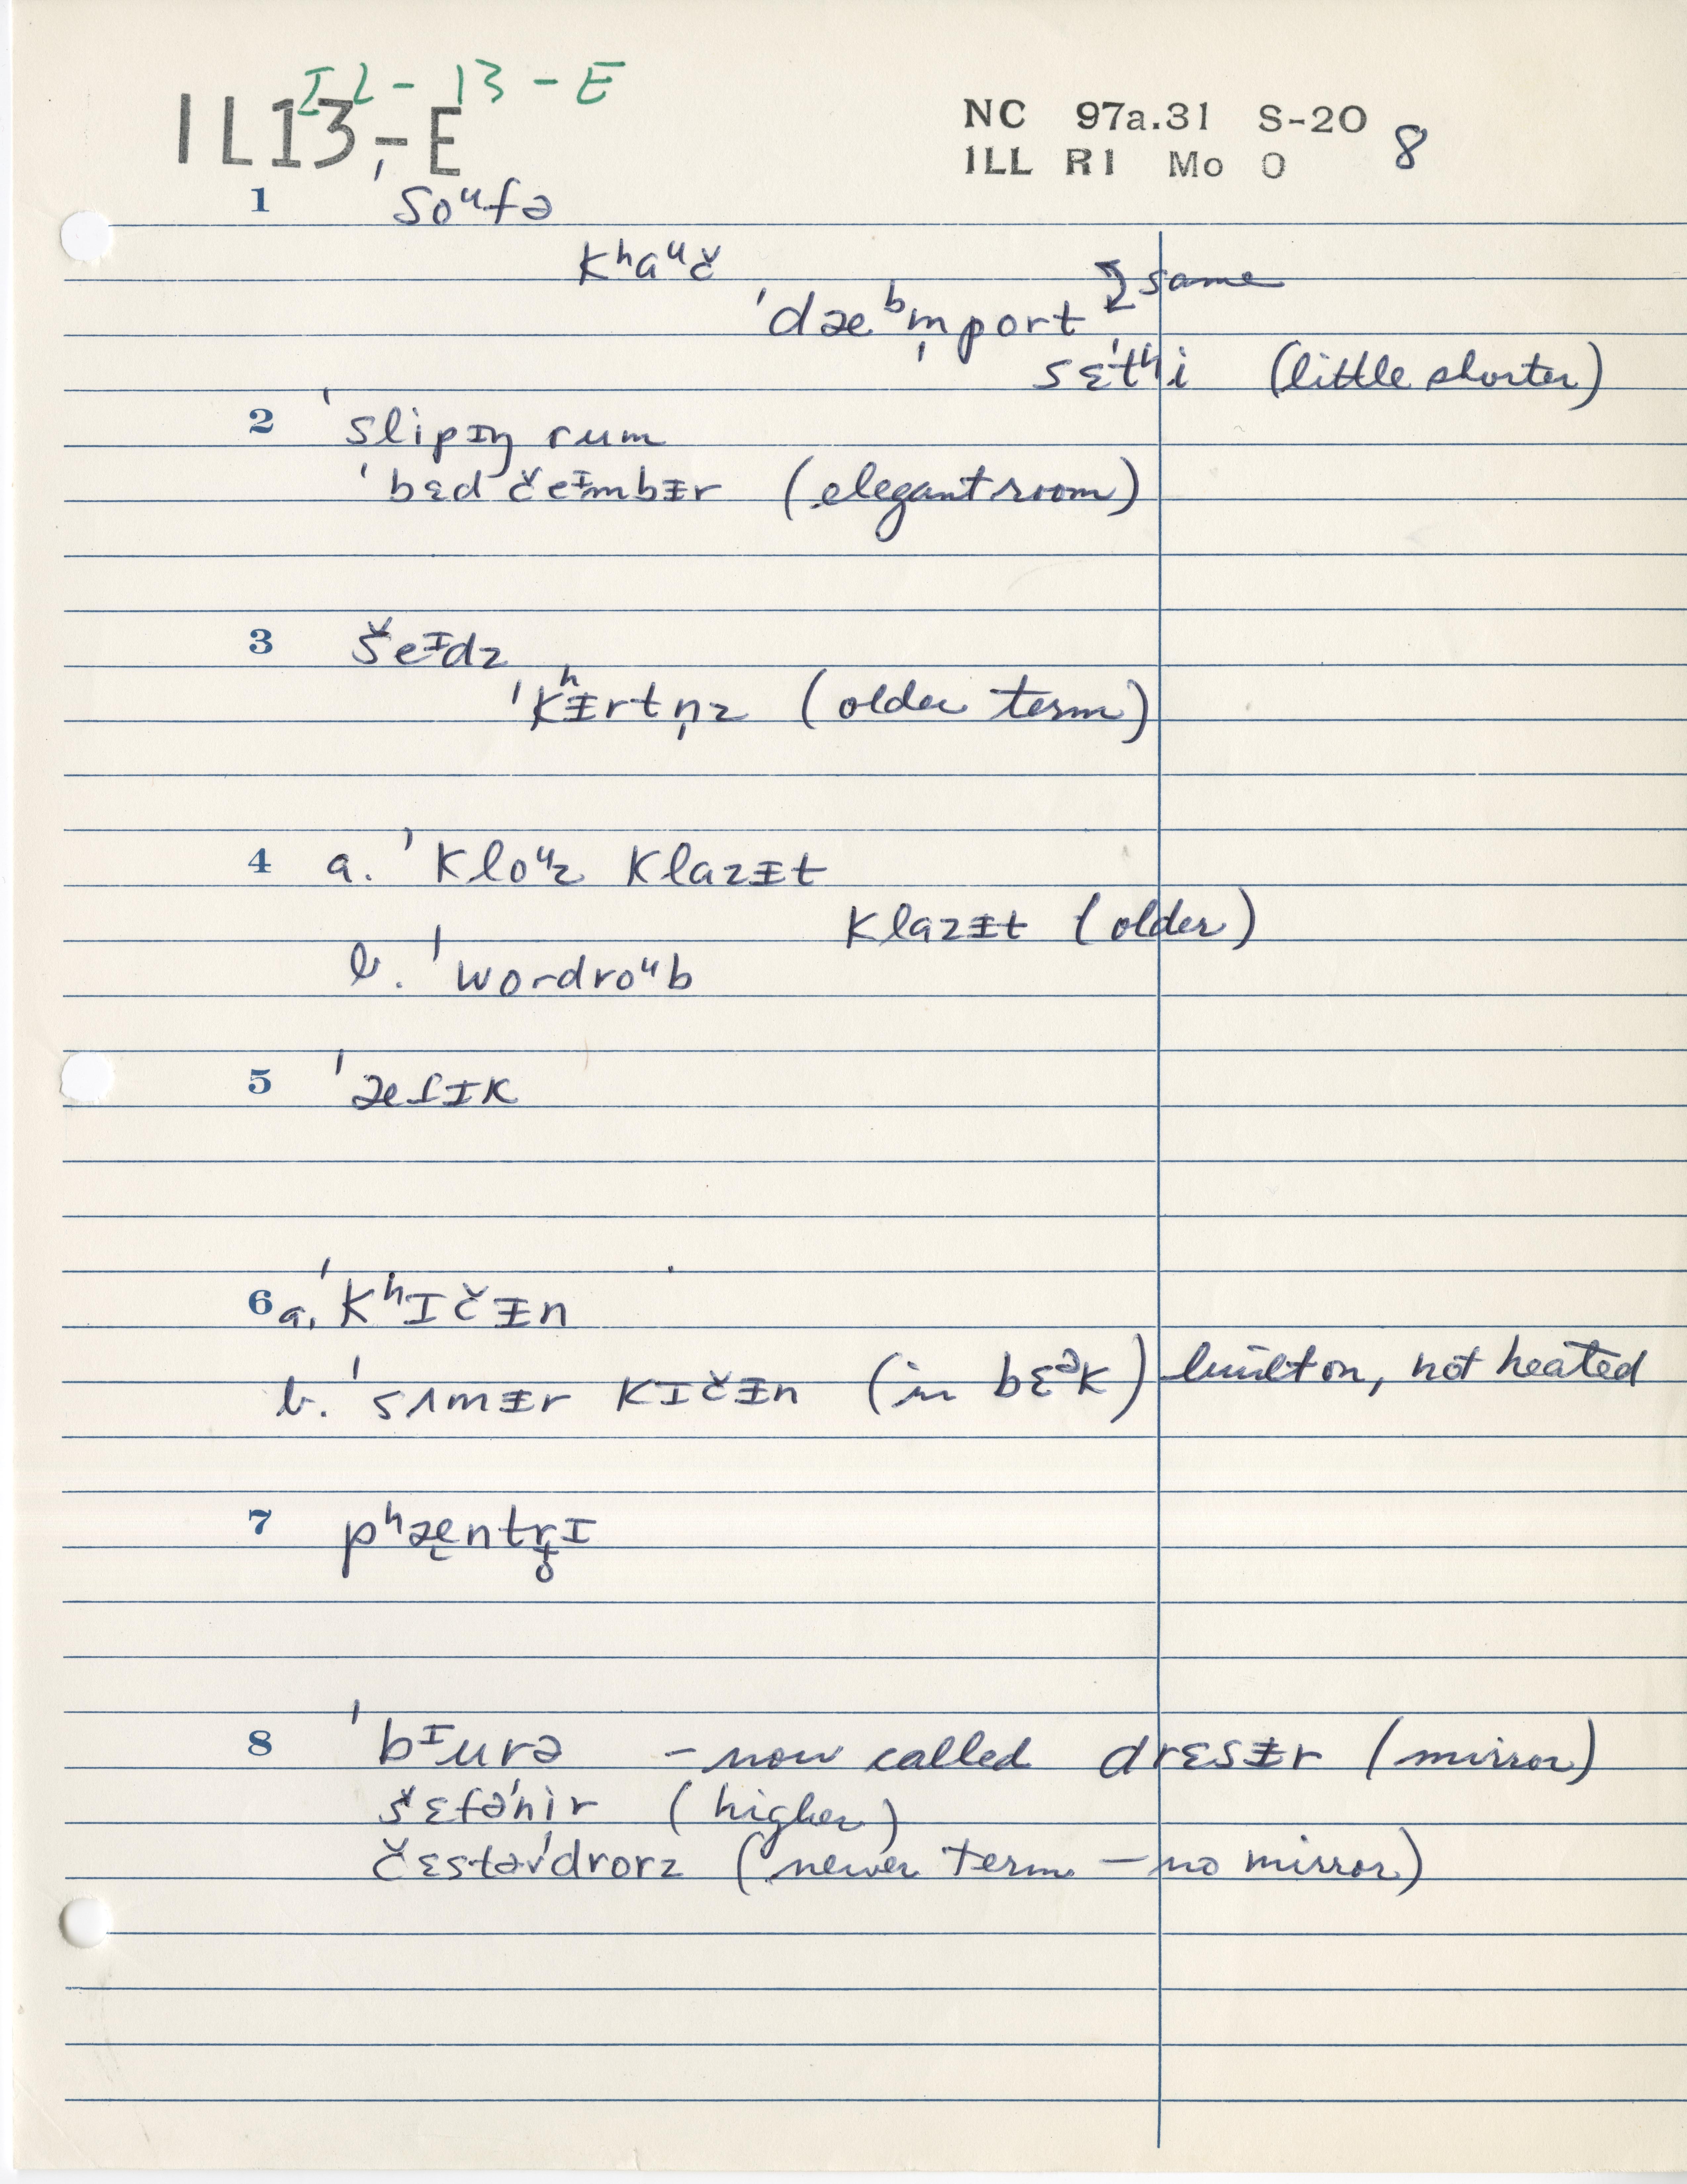 IL-13-E
IL13-E
NC 97a.31 S-20 8
ILL RI Mo O
1 ˈsoᵘfə
kʰaᵘč
ˈdæᵇm̩port same
sɛˈtʰi (little shorter)
2 ˈslipɪŋ rum
ˈbɛd čeᵻmbᵻr (elegant room)
3 šeᵻdz
ˈkʰᵻrtn̩z (older term)
4 a. ˈkloᵘz klazᵻt
klazᵻt (older)
b. ˈwordroᵘb
5 ˈæfɪk
6 a. ˈkʰɪčᵻn
b. ˈsʌmᵻr kɪčᵻn (in bɛᵊk) built on, not heated
7 pʰæ̨ntr̥ɪ
8 ˈbᶦurə – now called drɛsᵻr (mirror)
šɛfəˈnir (higher)
čɛstəvˈdrorz (newer term – no mirror)